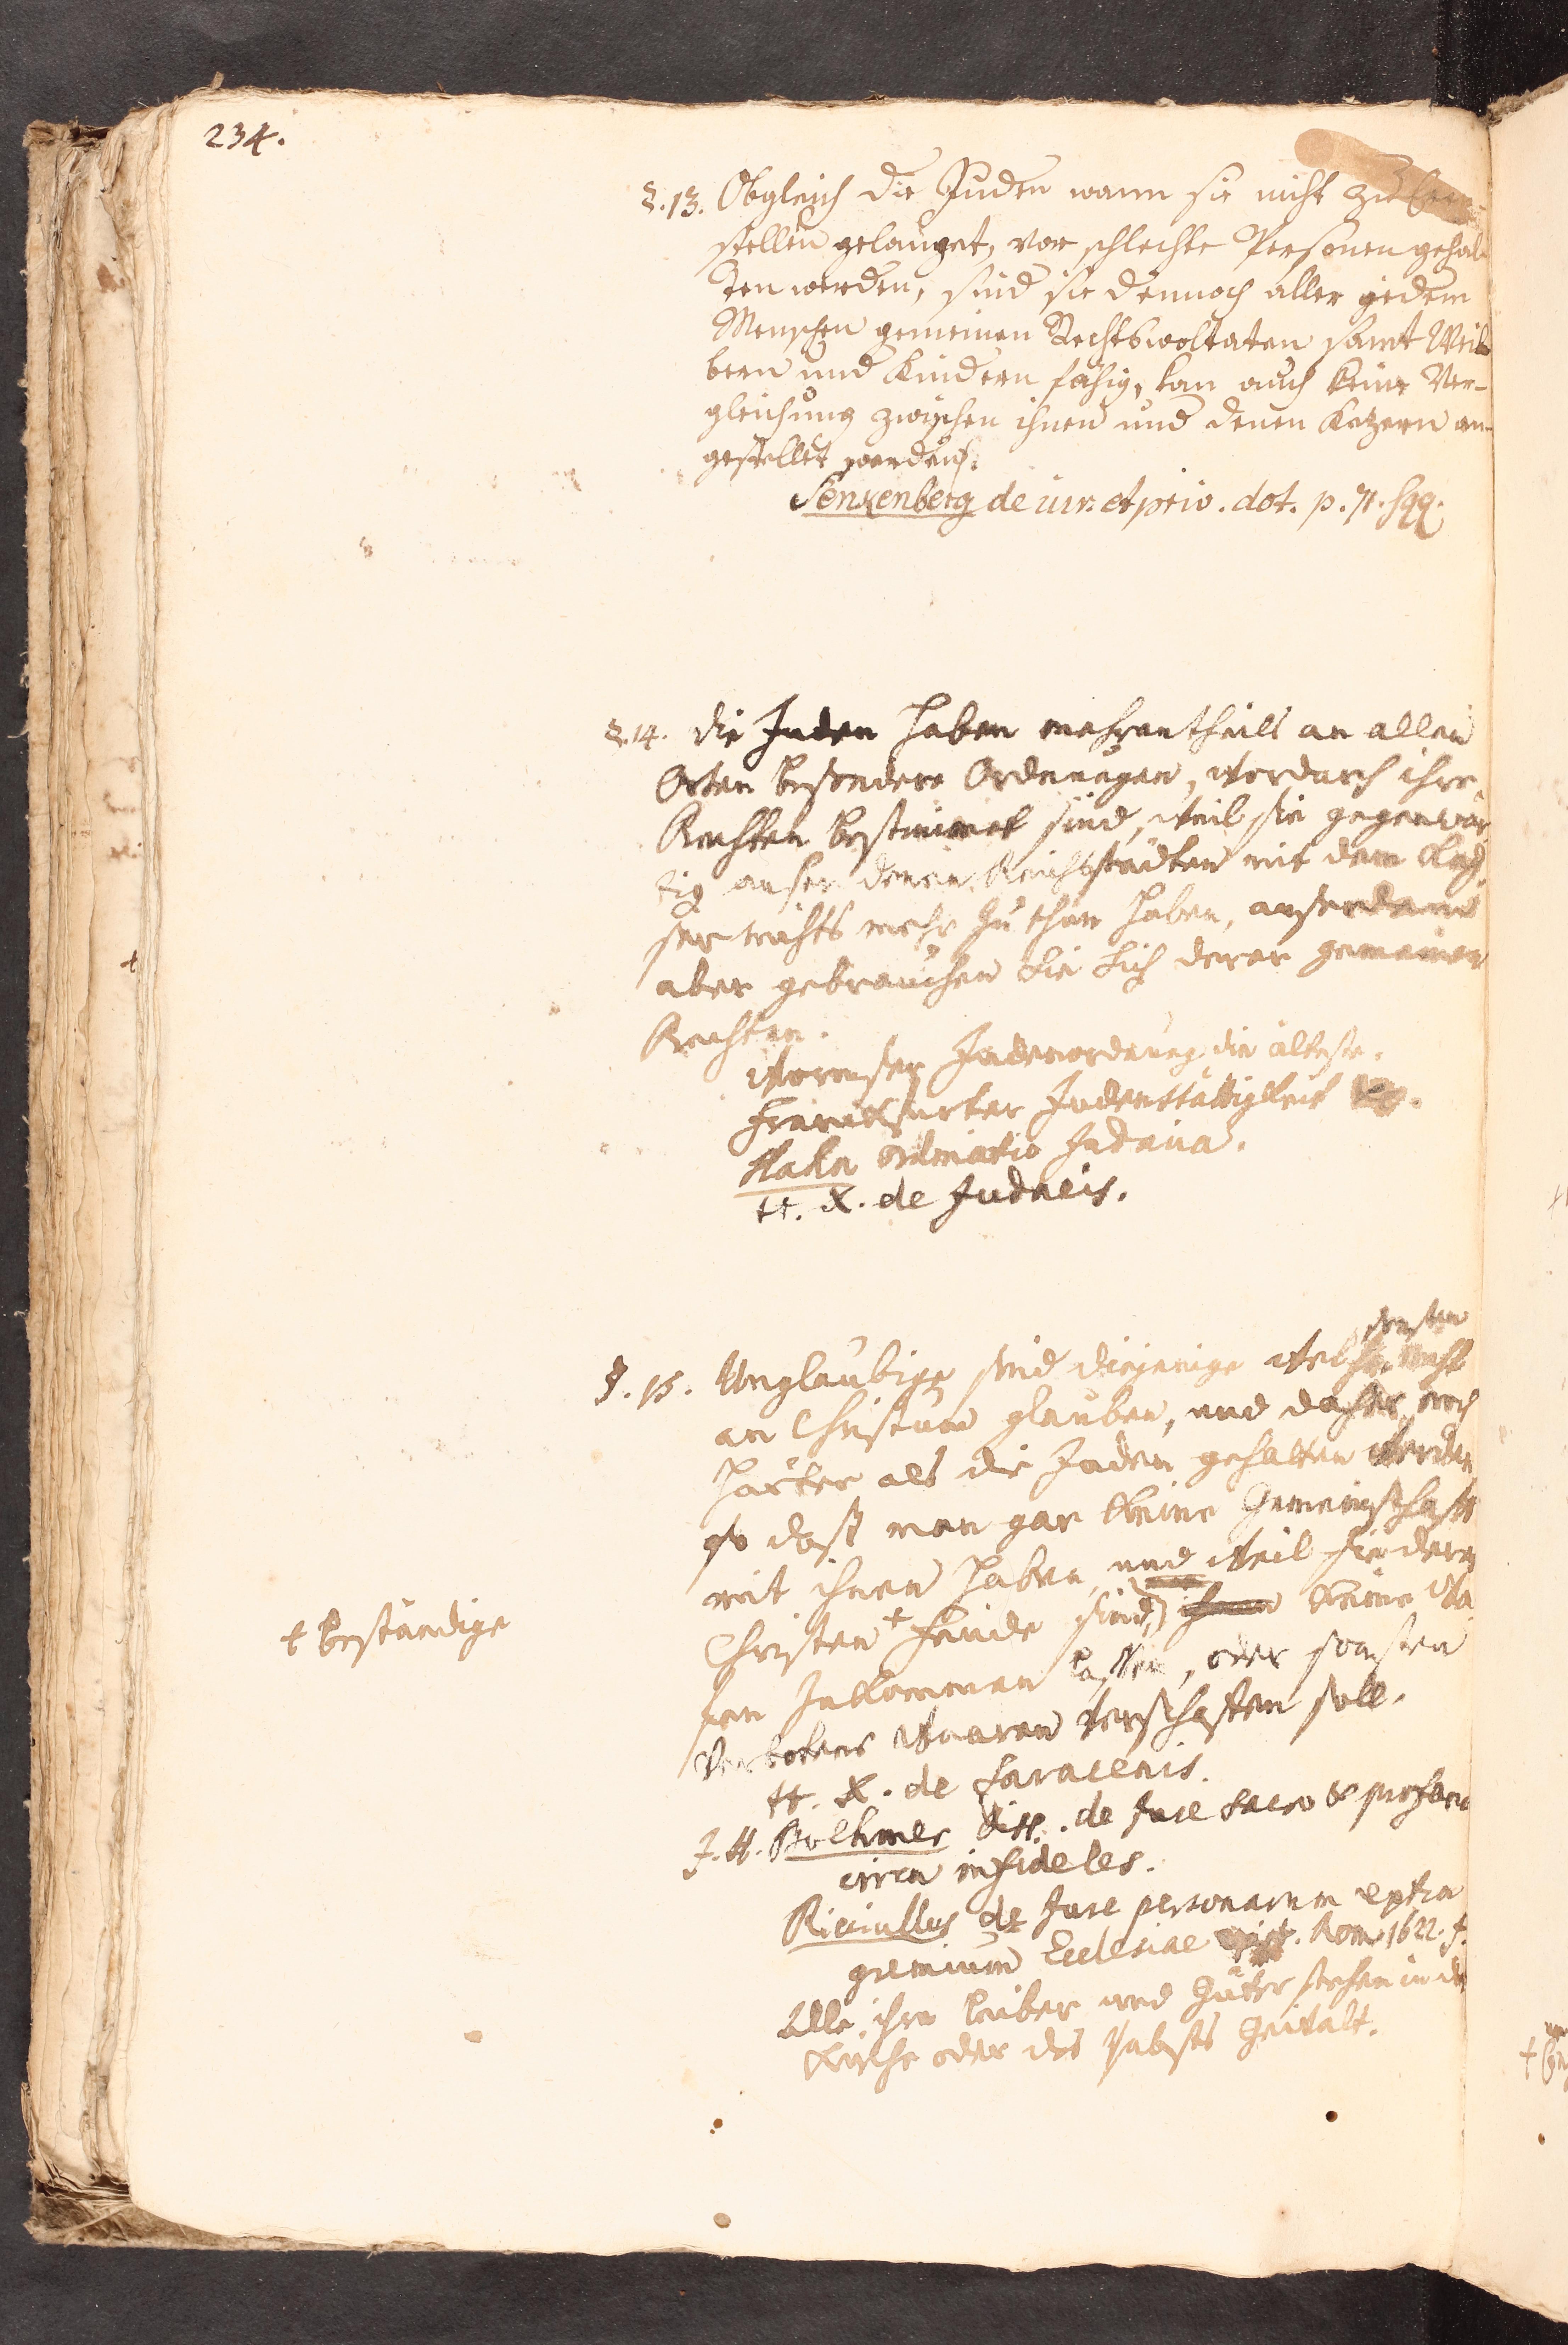 234.
§. 13. Obgleich die Juden wann sie nicht zu Ehren-
stellen gelanget, vor schlechte Personen gehal-
ten werden, sind sie dennoch aller jedem
Menschen gemeinen Rechtswoltaten samt Wei-
bern und Kindern fähig, kan auch keine Ver-
gleichung zwischen ihnen und denen Kezern an-
gestellet werden.
Senkenberg de iur. et priv. dot. p. 71. sqq.
§. 14. Die Juden haben mehrentheils an allen
Orten besondere Ordnungen, wordurch ihre
Rechten bestimmet sind, weil sie gegenwär-
tig auser denen Reichsstädten mit dem Kay-
ser nichts mehr zu thun haben, auserdeme
aber gebrauchen sie sich derer gemeinen
Rechten.
Wormser Judenordnung die älteste.
Franckfurter Judenstättigkeit
Hahn ordinatio Judaica.
tt. X. de Judaeis.
sonsten
§. 15. Unglaubige sind diejenige welche nicht
an Christum glauben, und daher noch
härter als die Juden gehalten werden
so daß man gar keine Gemeinschaft
mit ihnen haben, und weil sie derer
Christen + Feinde sind, keine Wa-
fen zukommen lassen, oder sonsten
verbotene Waaren verschaffen soll.
+ beständige
tt. X. de Saracenis.
J. H. Boehmer diss. de Jure sacro & profano
circa infideles.
Ricciullus de Jure personarum extra
gremium Ecclesiae exist. Rom. 1622. f.
Alle ihre Leiber und Güter stehen in der
Kirche oder des Pabsts Gewalt.